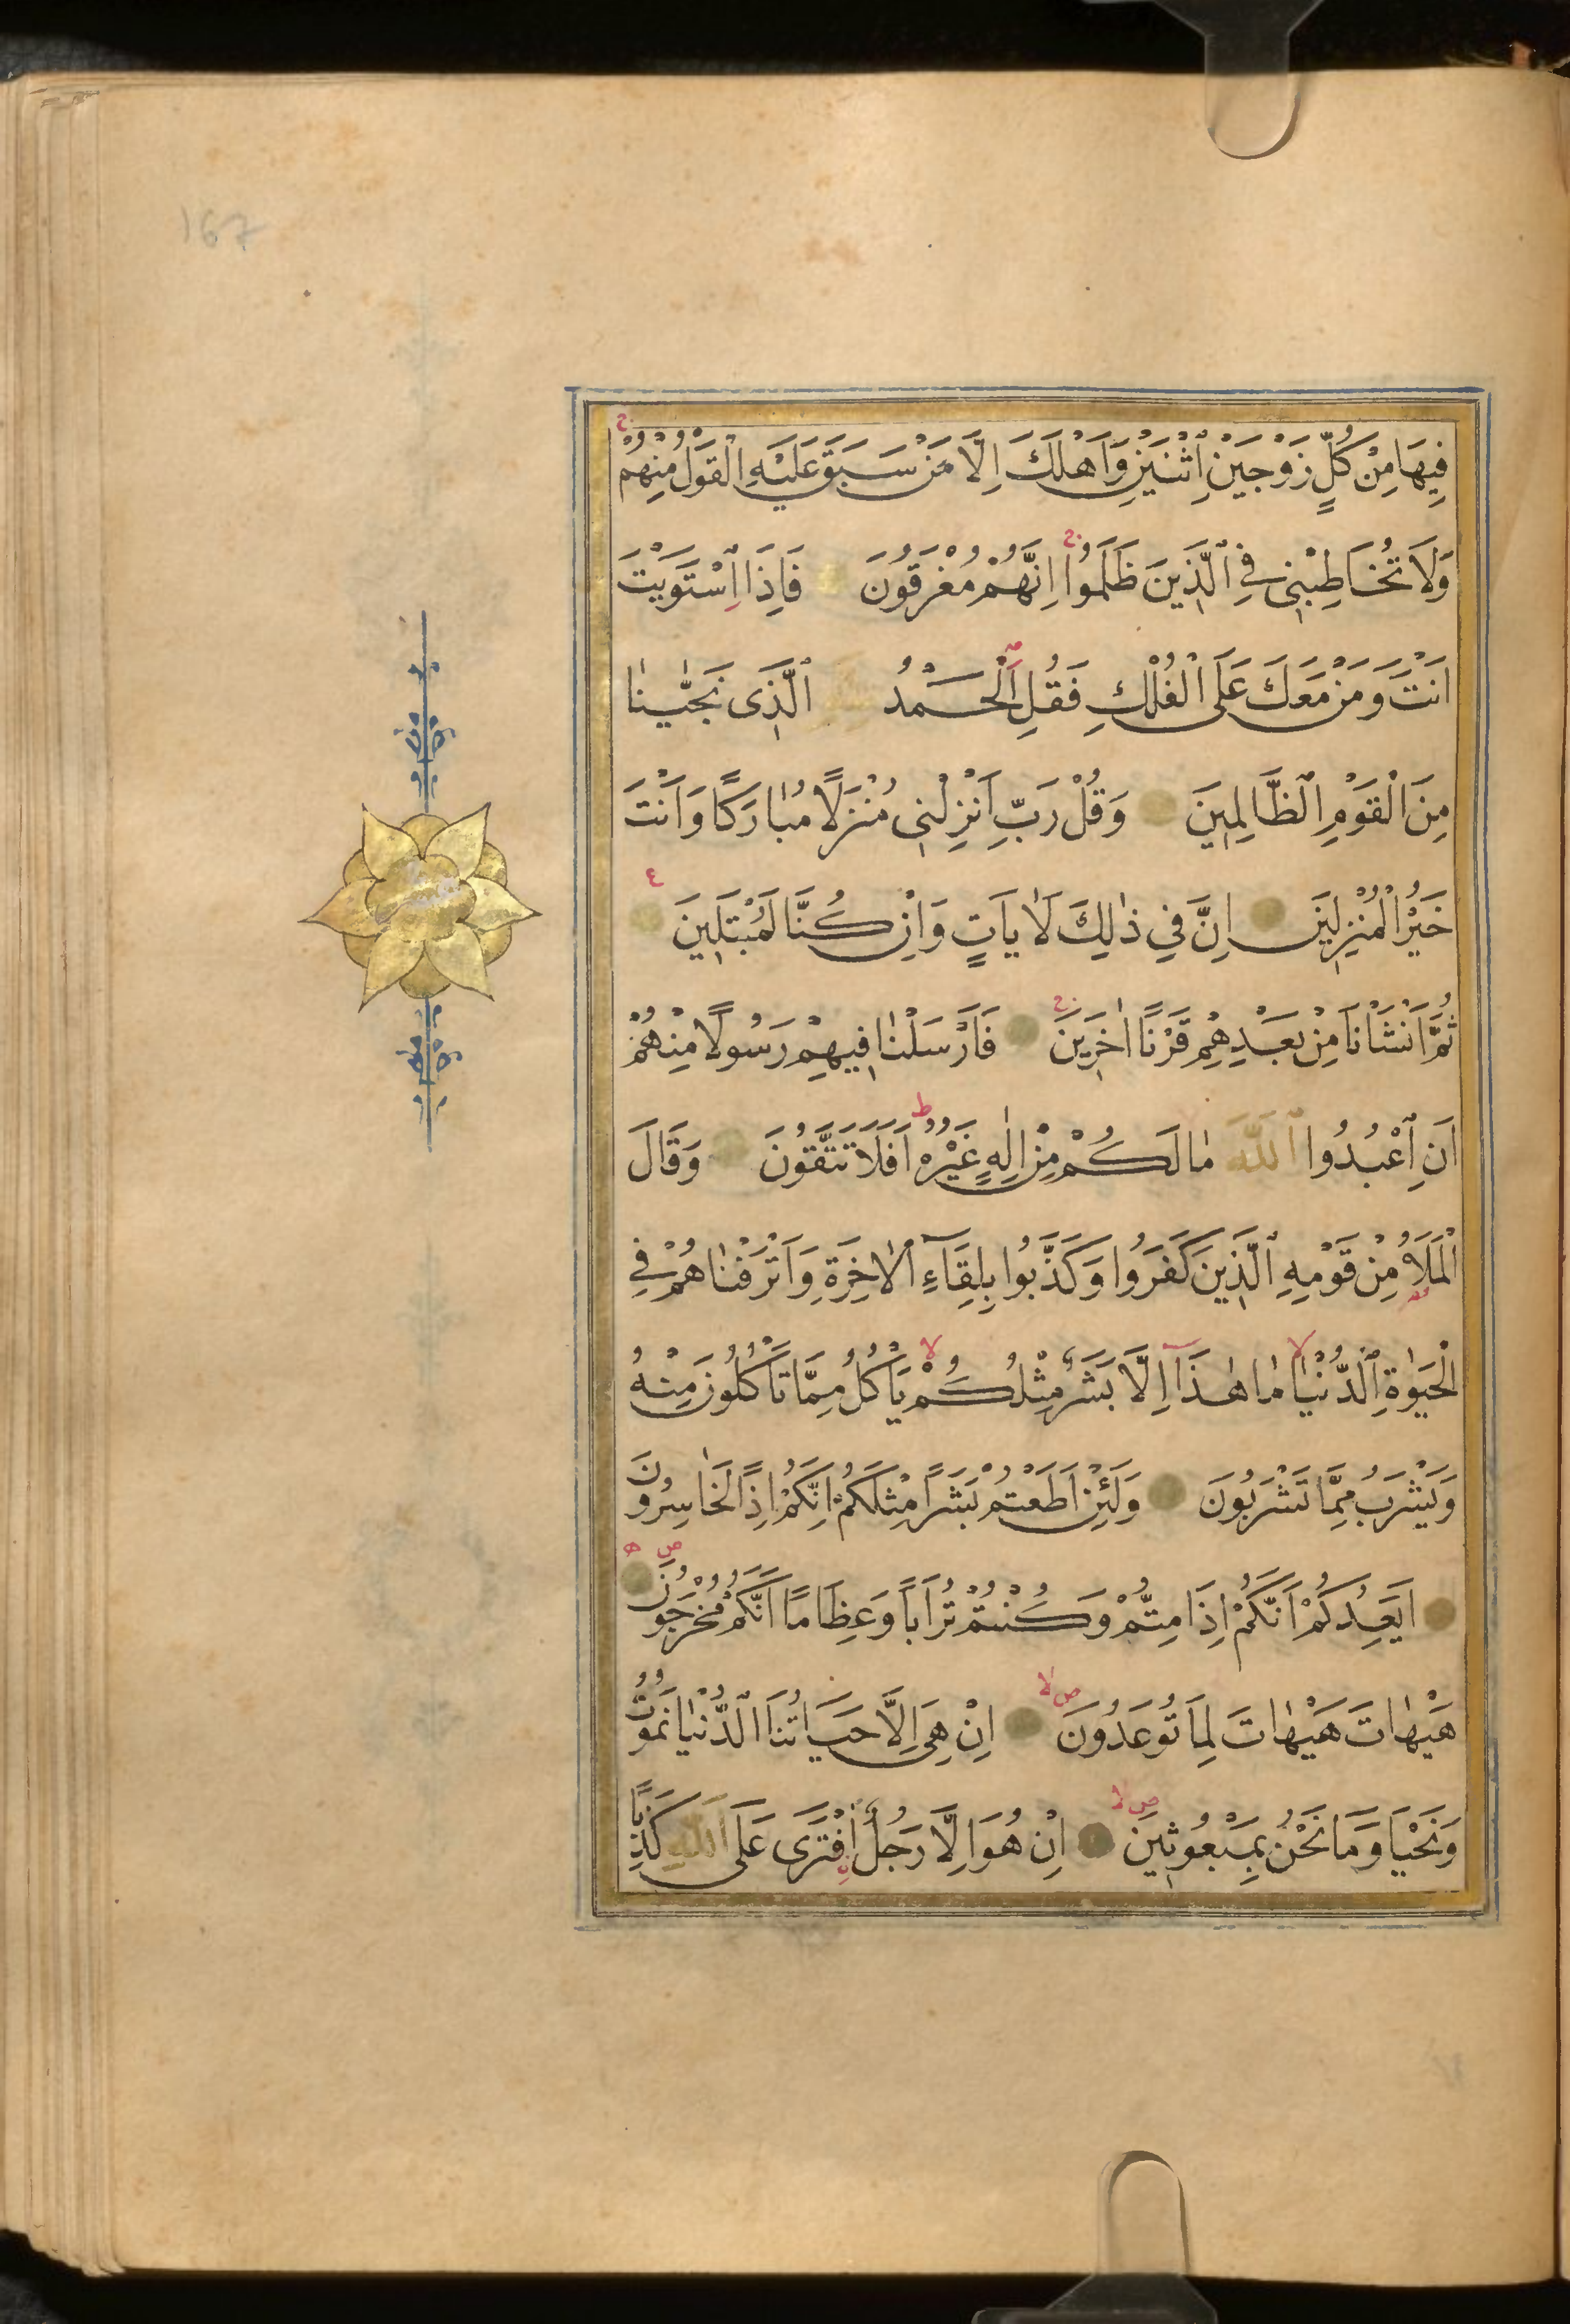 167
فِيهَا مِنْ كُلٍّ زَوْجَيْنِ اثْنَيْنِ وَاَهْلَكَ اِلَّا مَنْ سَبَقَ عَلَيْهِ الْقَوْلُ مِنْهُمْ
وَلَا تُخَاطِبْنِى فِى الَّذِينَ ظَلَمُوا اِنَّهُمْ مُغْرَقُونَ فَاِذَا اسْتَوَيْتَ
اَنْتَ وَمَنْ مَعَكَ عَلَى الْفُلْكِ فَقُلِ الْحَمْدُ الَّذِى نَجّٰينَا
مِنَ الْقَوْمِ الظَّالِمِينَ وَقُلْ رَبِّ اَنْزِلْنِى مُنْزَلًا مُبَارَكًا وَاَنْتَ
خَيْرُ الْمُنْزِلِينَ اِنَّ فِى ذٰلِكَ لَاٰيَاتٍ وَاِنْ كُنَّا لَمُبْتَلِينَ
ثُمَّ اَنْشَاْنَا مِنْ بَعْدِهِمْ قَرْنًا اٰخَرِينَ فَاَرْسَلْنَا فِيهِمْ رَسُولًا مِنْهُمْ
اَنِ اعْبُدُوا اللّٰهَ مَا لَكُمْ مِنْ اِلٰهٍ غَيْرُهُ اَفَلَا تَتَّقُونَ وَقَالَ
الْمَلَاُ مِنْ قَوْمِهِ الَّذِينَ كَفَرُوا وَكَذَّبُوا بِلِقَآءِ الْاٰخِرَةِ وَاَتْرَفْنَاهُمْ فِى
الْحَيٰوةِ الدُّنْيَا مَا هٰذَٓا اِلَّا بَشَرٌ مِثْلُكُمْ يَاْكُلُ مِمَّا تَاْكُلُونَ مِنْهُ
وَيَشْرَبُ مِمَّا تَشْرَبُونَ وَلَئِنْ اَطَعْتُمْ بَشَرًا مِثْلَكُمْ اِنَّكُمْ اِذًا لَخَاسِرُونَ
اَيَعِدُكُمْ اَنَّكُمْ اِذَا مِتُّمْ وَكُنْتُمْ تُرَابًا وَعِظَامًا اَنَّكُمْ مُخْرَجُونَ
هَيْهَاتَ هَيْهَاتَ لِمَا تُوعَدُونَ اِنْ هِىَ اِلَّا حَيَاتُنَا الدُّنْيَا نَمُوتُ
وَنَحْيَا وَمَا نَحْنُ بِمَبْعُوثِينَ اِنْ هُوَ اِلَّا رَجُلٌ افْتَرَى عَلَى اللّٰهِ كَذِبًا